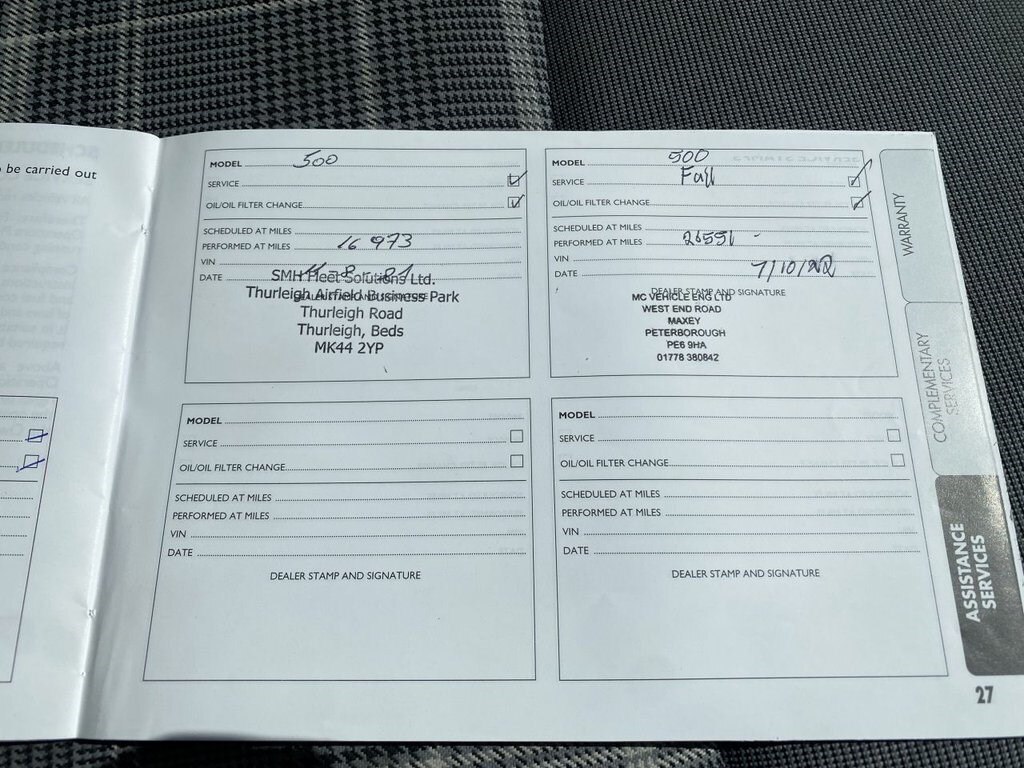 o be carried out
MODEL 500
SERVICE
OIL/OIL FILTER CHANGE
SCHEDULED AT MILES
PERFORMED AT MILES 16 973
VIN
DATE 11-8-21
DEALER STAMP AND SIGNATURE
SMH Fleet Solutions Ltd.
Thurleigh Airfield Business Park
Thurleigh Road
Thurleigh, Beds
MK44 2YP
MODEL 500
SERVICE Full
OIL/OIL FILTER CHANGE
SCHEDULED AT MILES
PERFORMED AT MILES 26591
VIN
DATE 7/10/22
DEALER STAMP AND SIGNATURE
MC VEHICLE ENG LTD
WEST END ROAD
MAXEY
PETERBOROUGH
PE6 9HA
01778 380842
MODEL
SERVICE
OIL/OIL FILTER CHANGE
SCHEDULED AT MILES
PERFORMED AT MILES
VIN
DATE
DEALER STAMP AND SIGNATURE
MODEL
SERVICE
OIL/OIL FILTER CHANGE
SCHEDULED AT MILES
PERFORMED AT MILES
VIN
DATE
DEALER STAMP AND SIGNATURE
WARRANTY
COMPLEMENTARY
SERVICES
ASSISTANCE
SERVICES
27